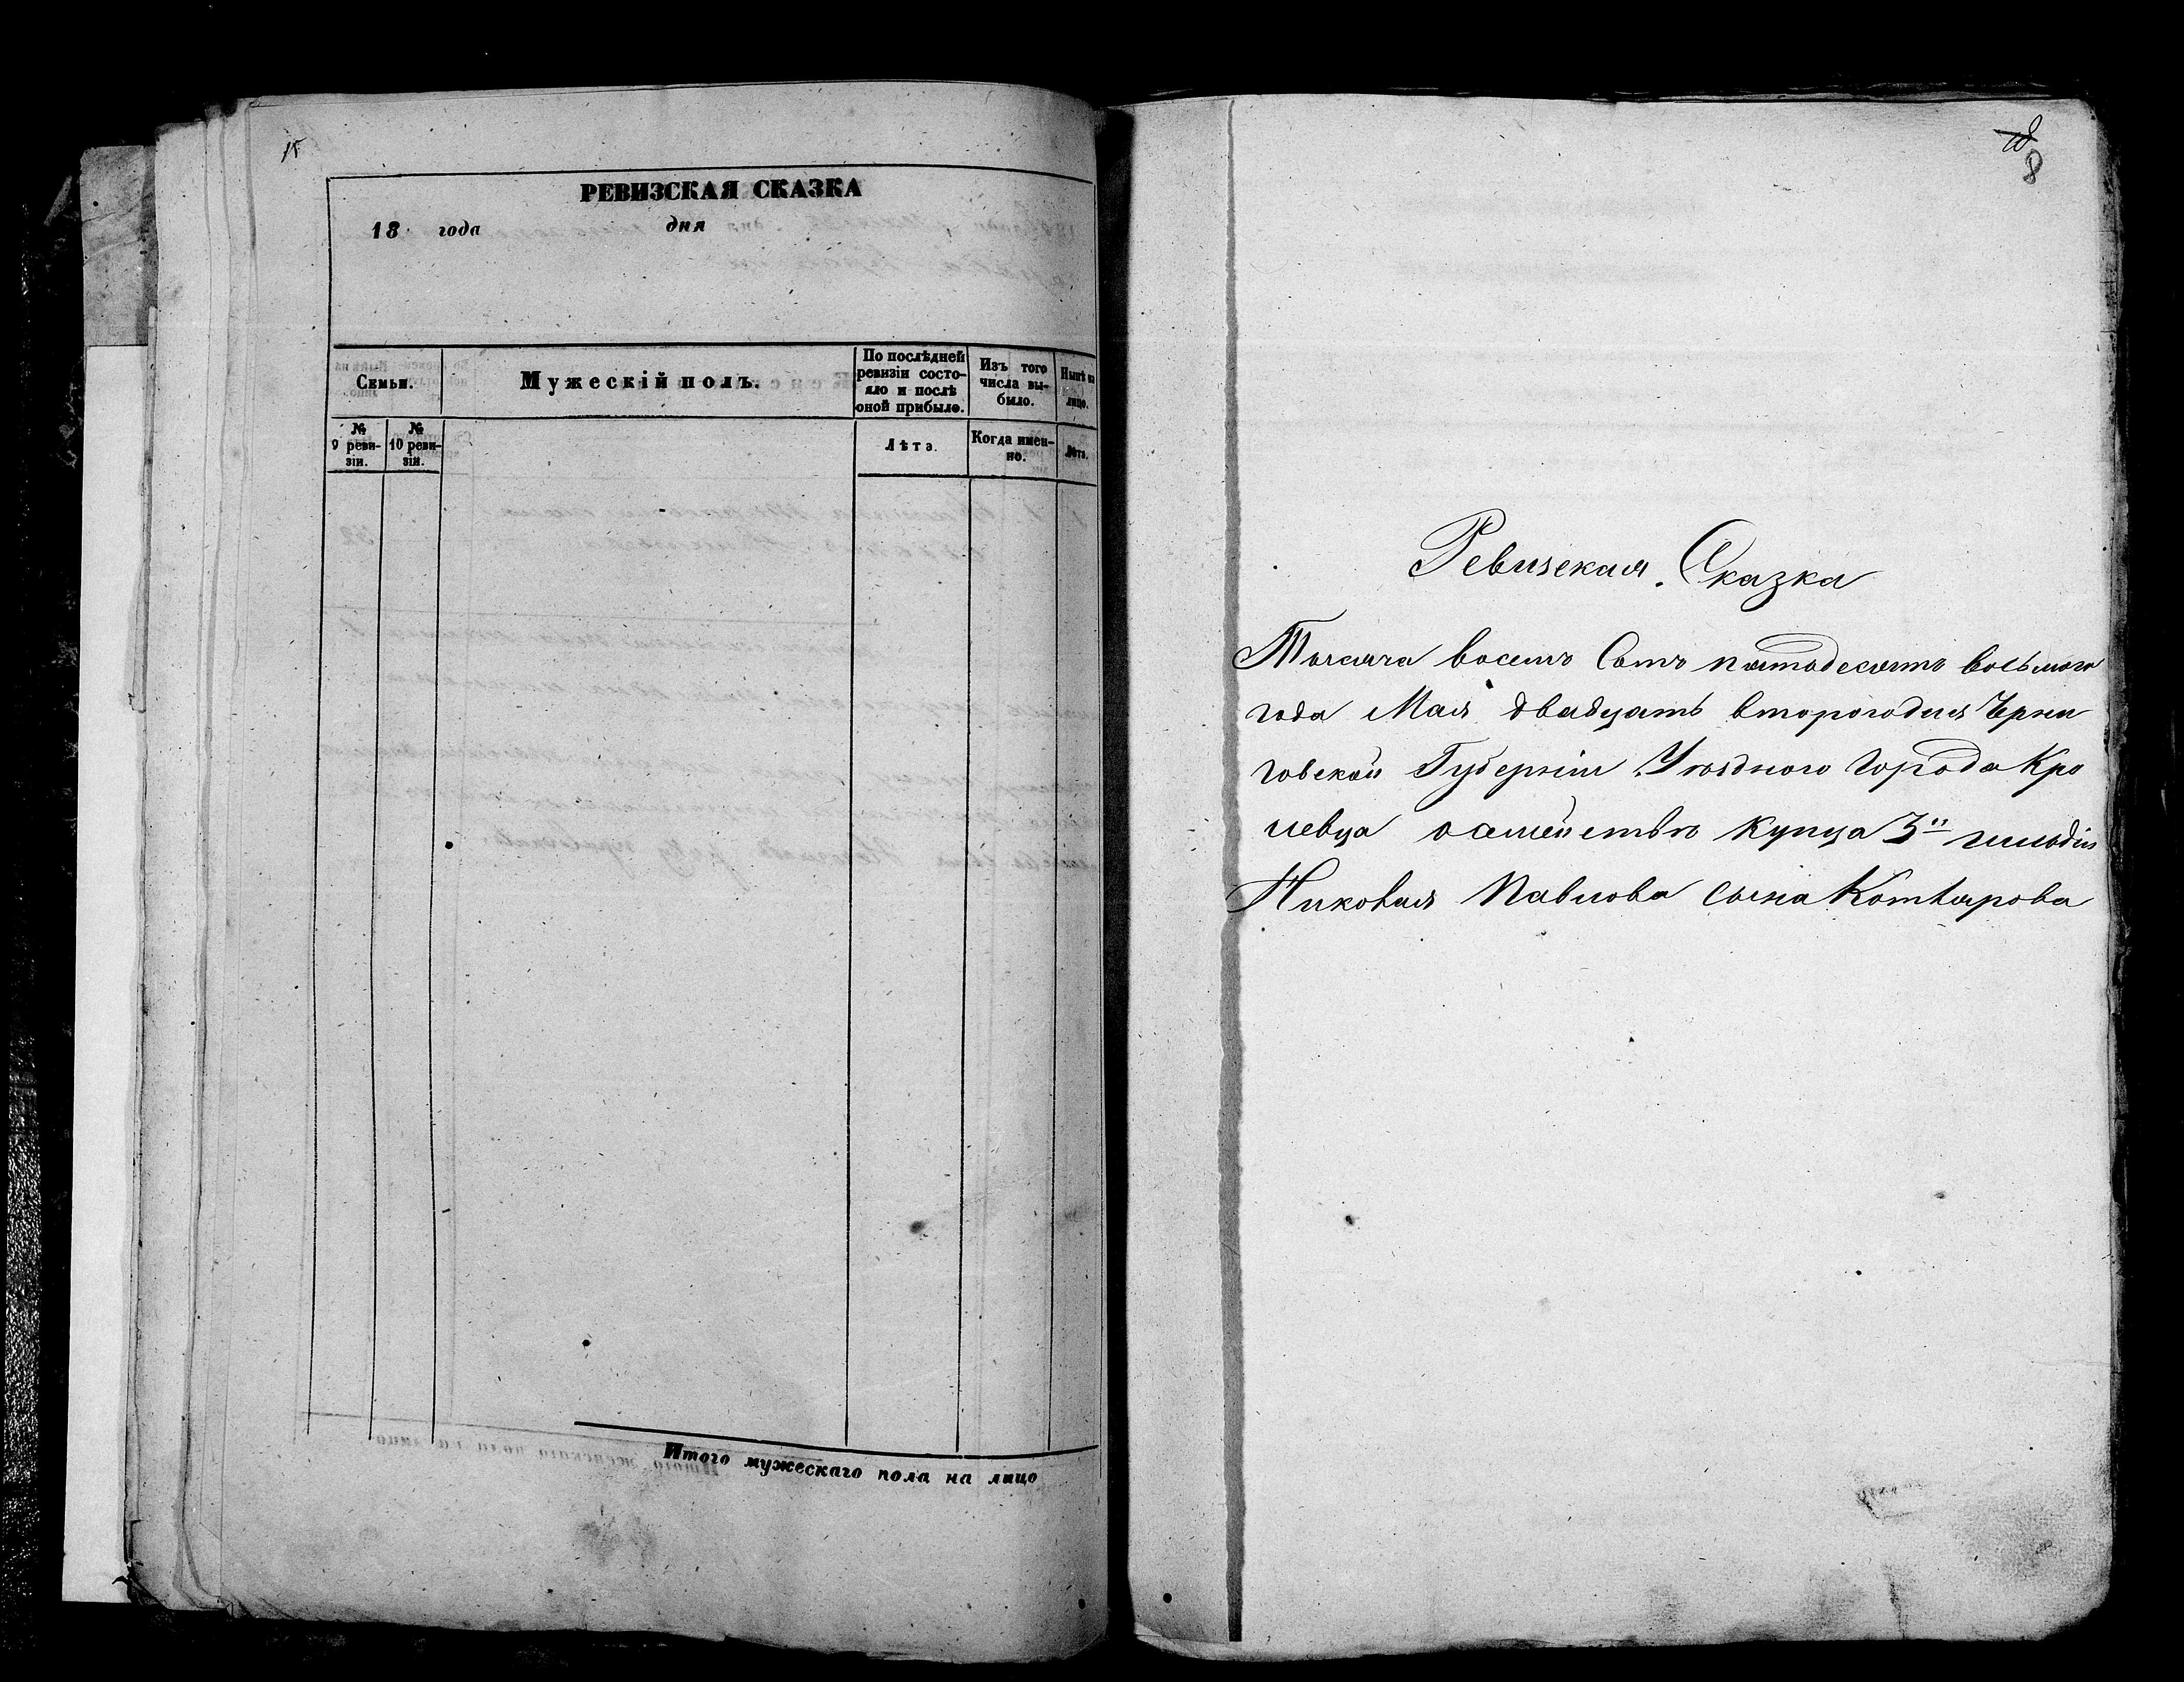 РЕВИЗСКАЯ СКАЗКА
18 года дня
Семьи.
Мужескій полъ.
По послѣдней
ревизіи состо-
яло и послѣ
оной прибыло.
Изъ того
числа вы-
было.
Нынѣ на
лицо.
№
9 реви-
зіи.
№
10 реви-
зіи.
Лѣта.
Когда имен-
но.
Лѣта.
Итого мужескаго пола на лицо
8
Ревизская Сказка
Тысяча восемъ Сотъ пятьдесятъ восьмого
года Мая двадцать второгодня Черни
говской Губерніи Уѣзднаго Города Кро
левца осемействѣ Купца 3й гильдіи
Николая Павлова Сына Котлярова